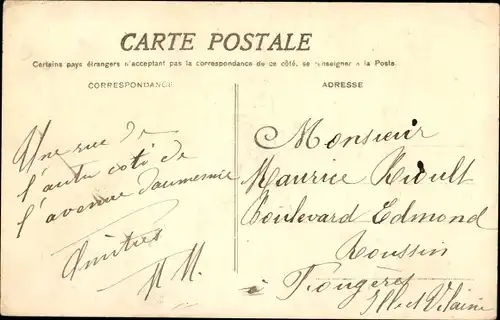 CARTE POSTALE
Certains pays étrangers n'acceptant pas la correspondance de ce côté, se renseigner à la Poste.
CORRESPONDANCE
ADRESSE
Une rue de
l'autre coté de
l'avenue daumesnil
Amitiés
M.
Monsieur
Maurice Rioult
Boulevard Edmond
Roussin
à Fougères
Ille et Vilaine